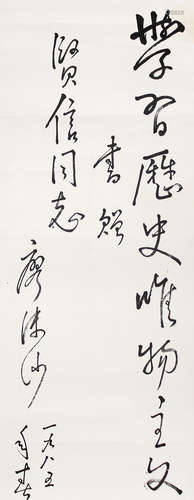 學習歷史唯物主义
書贈
賢信同志
廖沫沙
一九八五
年春